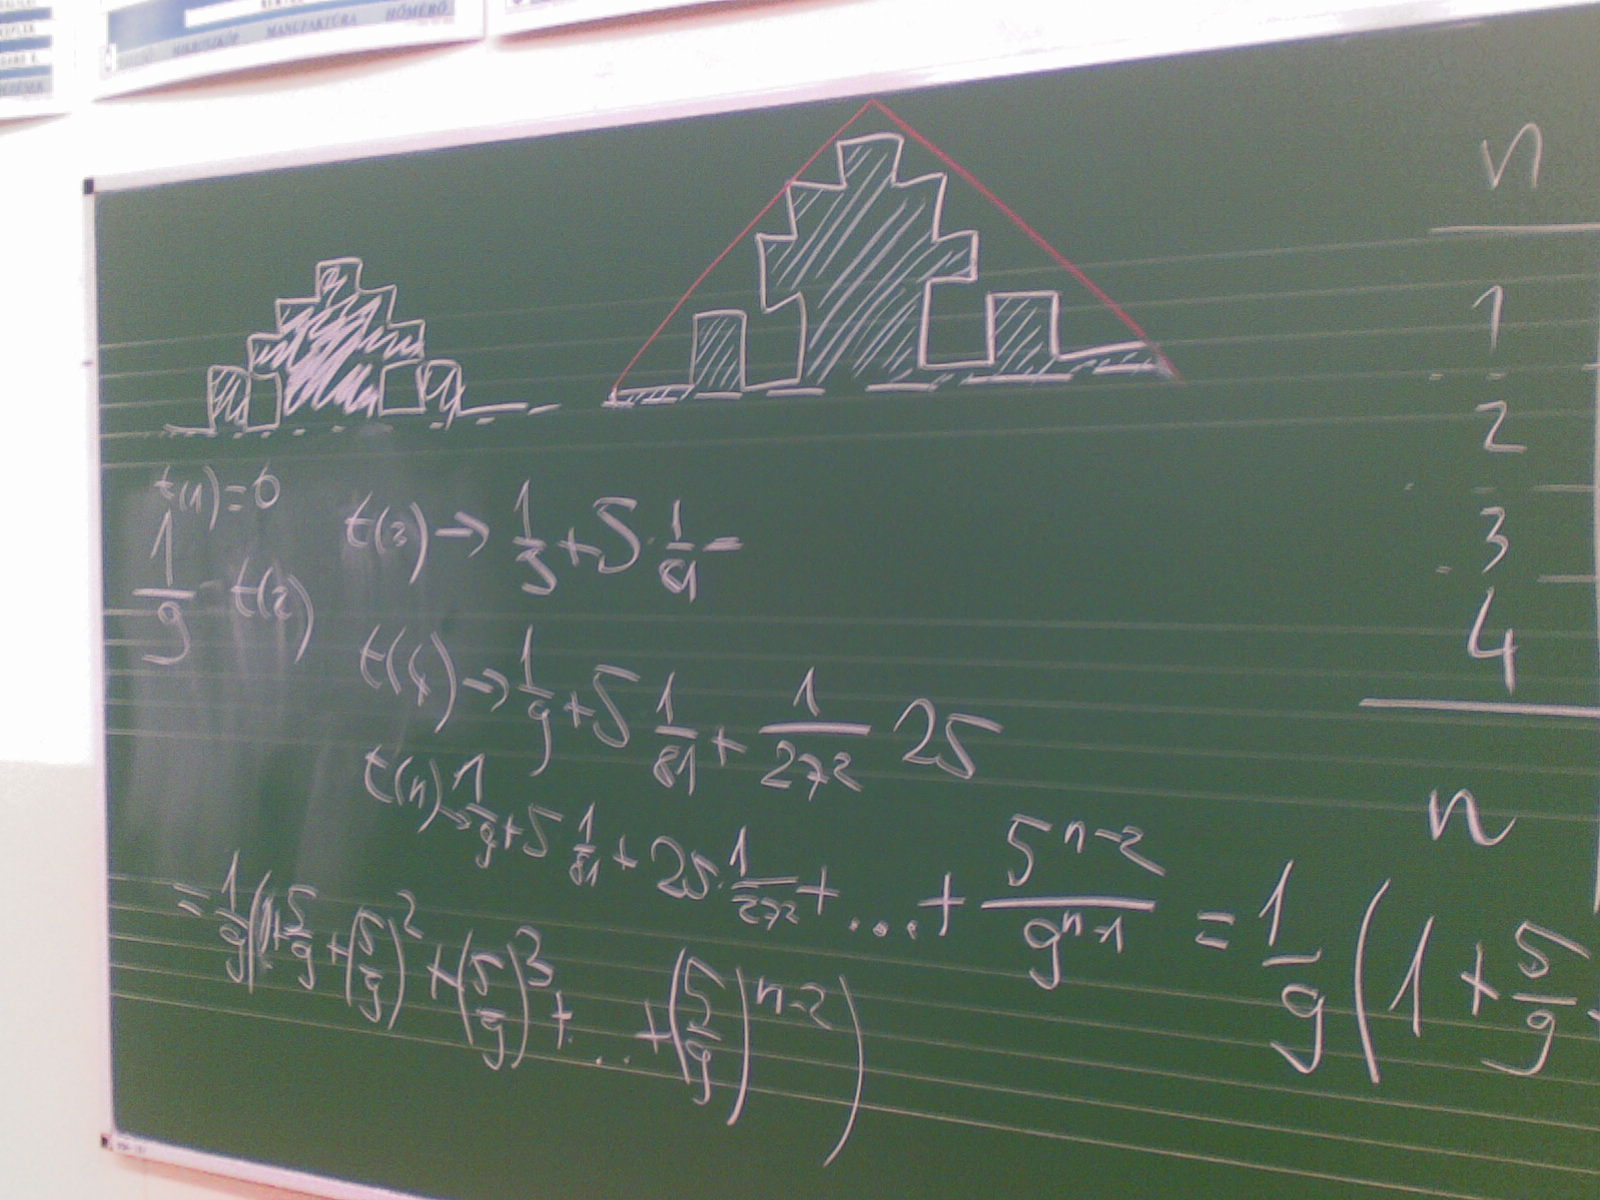 MIKROSZKÓP MANUFAKTÚRA HŐMÉRŐ
n
1
2
3
4
t(1)=0
1/9 t(2)
t(3) → 1/9 + 5 · 1/81 =
t(4) → 1/9 + 5 1/81 + 1/27² 25
t(n) → 1/9 + 5 1/81 + 25 · 1/27² + ... + 5^(n-2)/9^(n-1) = 1/9 (1 + 5/9
= 1/9 (1 + 5/9 + (5/9)² + (5/9)³ + ... + (5/9)^(n-2))
n